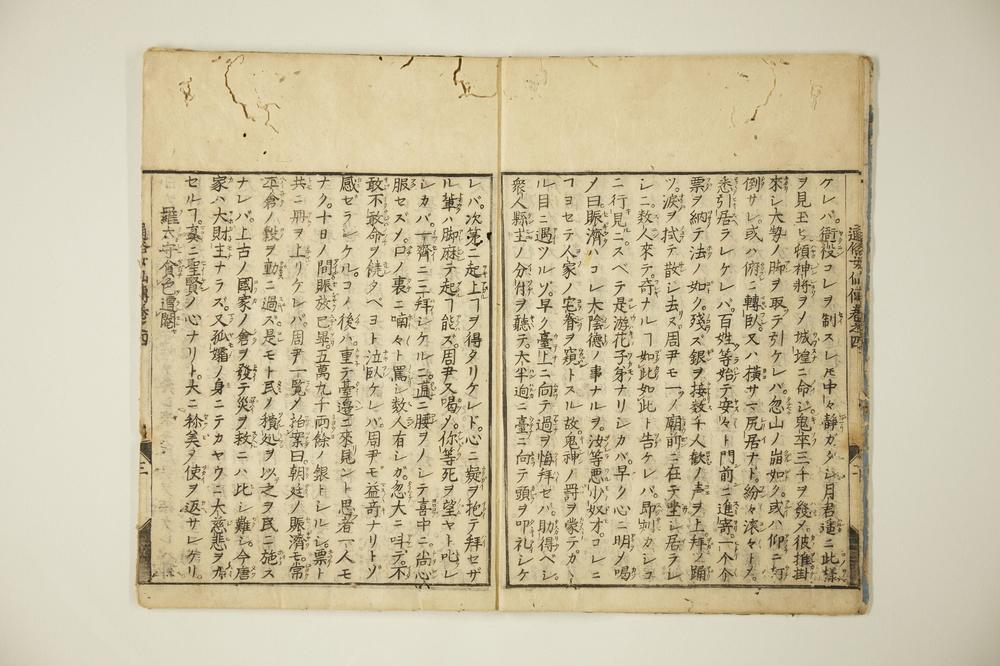 通俗女仙傳卷之四
ケレバ。衙役コレヲ制スレ𪜈中々靜ガタシ月君遙ニ此樣
ヲ見玉ヒ頓神將ヲノ城煌ニ命シ鬼卒三千ヲ發メ。彼推掛
來シ大勢ノ脚ヲ取テ引ケレバ。忽山ノ崩如ク。或ハ仰ニ
倒サレ或ハ俯ニ轉臥又ハ橫サマ尻居ナド。紛々滾々トメ。
悉引居ラレケレバ。百姓等始テ安々ト門前ニ進寄。一个个
票ヲ納テ法ノ如ク。殘ズ銀ヲ接。數千人歡ノ声ヲ上拜ノ踊
ツ。淚ヲ拭テ散シ去ス周尹モ一ノ廟前ニ在テ坐シ居ラレ
シニ。數人來テ。奇ナルヿ如此如此ト告ケレバ。即別カシコ
ニ行見ルニ。スベテ是游花子等ナリシカバ。早ク心ニ明メ喝
ノ曰賑濟ハコレ大陰德ノ事ナルヲ。汝等惡少奴才。コレニ
ヿヨセテ人家ノ宅眷ヲ窺トスル故鬼神ノ罰ヲ蒙テ。カヽ
ル目ニ遇ツルゾ。早ク臺上ニ向テ過ヲ悔拜セバ助得ベシ。
衆人縣主ノ分付ヲ聽テ。大半迴ニ臺ニ向テ頭ヲ叩礼シケ
レバ。次第ニ起上ヿヲ得タリケレド。心ニ疑ヲ抱テ拜セザ
ル輩ハ脚麻テ起ヿ能ズ。周尹又喝メ。你等死ヲ望ヤト叱レ
シカバ。一齊ニ三拜シケルニ。直ニ腰ヲノシテ喜中ニ。尚心
服セズノ。口ノ裏ニ喃々ト罵シ數人有シガ。忽大ニ呌デ。不
敢不敢命ヲ饒タベヨト泣臥ケレバ周尹モ益奇ナリトゾ
感ゼラレケル。コノ後ハ重テ臺邊ニ來見ント思者一人モ
ナク。十日ノ間賑放已畢。五萬九千兩餘ノ銀トシルシ。票ト
共ニ冊ヲ上リケレバ周尹一覽ノ拍案曰朝廷ノ賑濟モ。常
平倉ノ穀ヲ動ニ過ズ是モト民ノ積処ヲ以之ヲ民ニ施ス
ナレバ。上古ノ國家ノ倉ヲ發テ災ヲ救ニハ比シ難シ。今唐
家ハ大財主ナラズ。又孤孀ノ身ニテカヤウニ大慈悲ヲ
セルヿ。真ニ聖賢ノ心ナリト。大ニ称美ノ使ヲ返サレケリ。
羅太守貪色遭閹